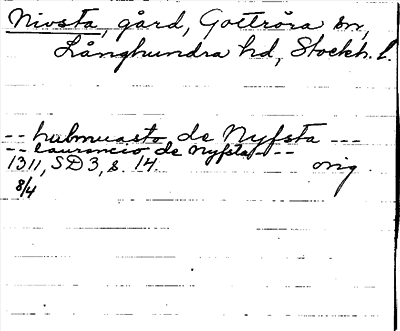 Nivsta, gård, Gottröra sn,
Långhundra hd, Stockh. l.
-- hulmuasto de Nyfsta ---
-- laurencio de Nyfsta ---
1311, SD 3, s. 14. orig.
8/4